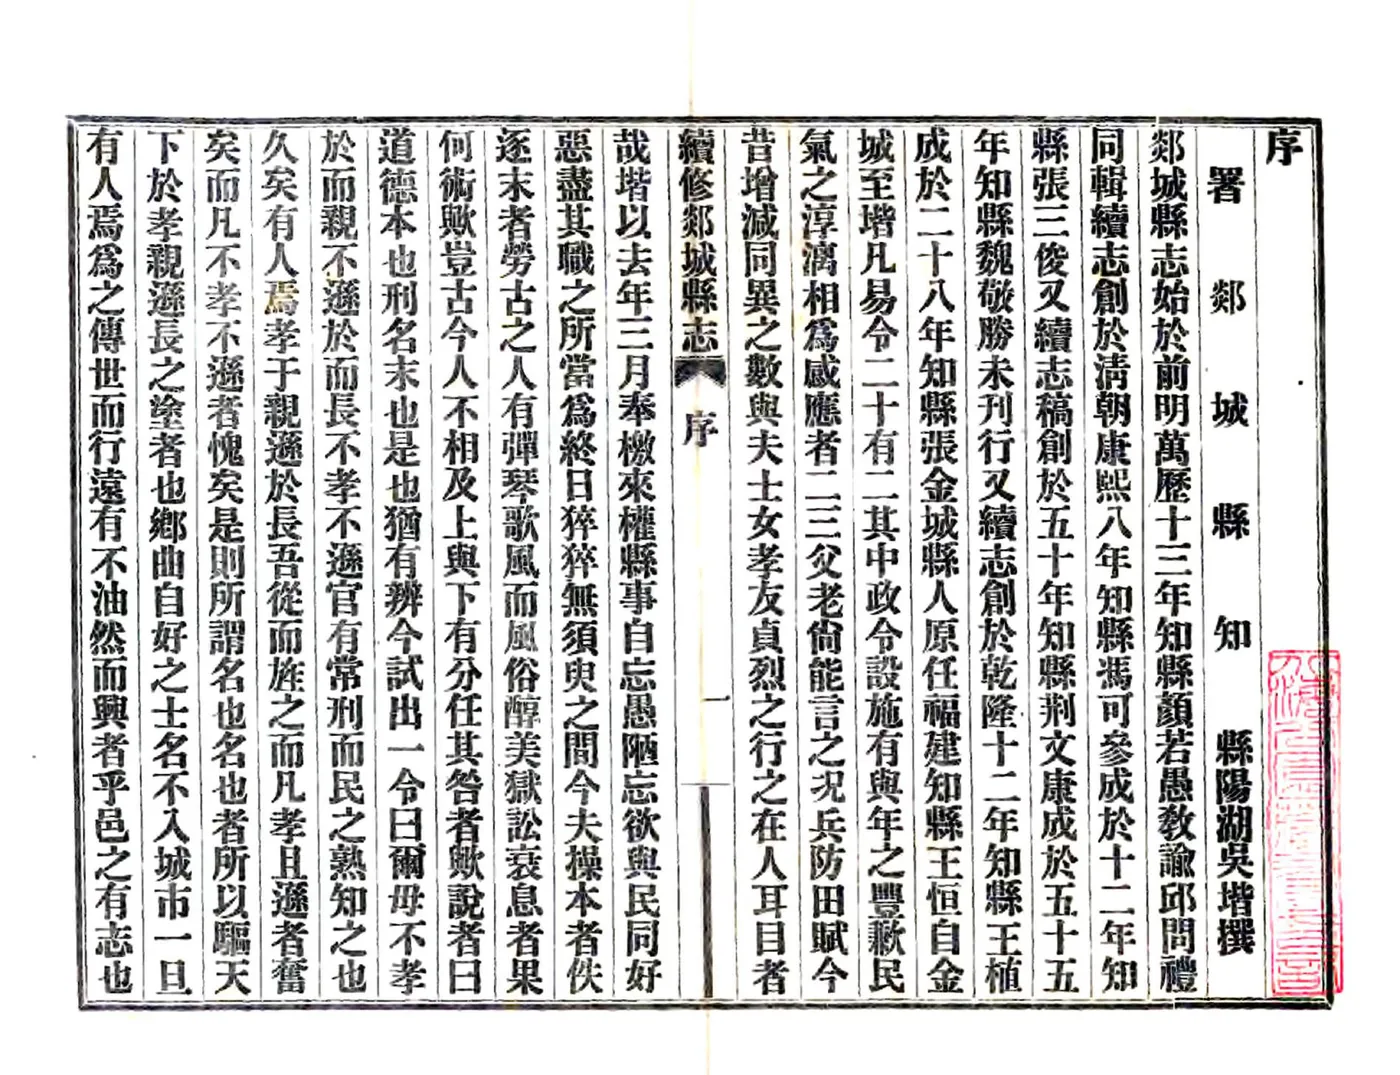 序
署郯城縣知縣陽湖吳堦撰
郯城縣志始於前明萬歷十三年知縣顏若愚敎諭邱問禮
同輯續志創於清朝康熙八年知縣馮可參成於十二年知
縣張三俊又續志稿創於五十年知縣荆文康成於五十五
年知縣魏敬勝未刋行又續志創於乾隆十二年知縣王植
成於二十八年知縣張金城縣人原任福建知縣王恒自金
城至堦凡易令二十有二其中政令設施有與年之豐歉民
氣之淳漓相爲感應者二三父老尙能言之况兵防田賦今
昔增減同異之數與夫士女孝友貞烈之行之在人耳目者
續修郯城縣志 序 一
哉堦以去年三月奉檄來權縣事自忘愚陋忘欲與民同好
惡盡其職之所當爲終日猝猝無須臾之間今夫操本者佚
逐末者勞古之人有彈琴歌風而風俗醇美獄訟衰息者果
何術歟豈古今人不相及上與下有分任其咎者歟說者曰
道德本也刑名末也是也猶有辨今試出一令曰爾毋不孝
於而親不遜於而長不孝不遜官有常刑而民之熟知之也
久矣有人焉孝于親遜於長吾從而旌之而凡孝且遜者奮
矣而凡不孝不遜者愧矣是則所謂名也名也者所以驅天
下於孝親遜長之塗者也鄕曲自好之士名不入城市一旦
有人焉爲之傳世而行遠有不油然而興者乎邑之有志也